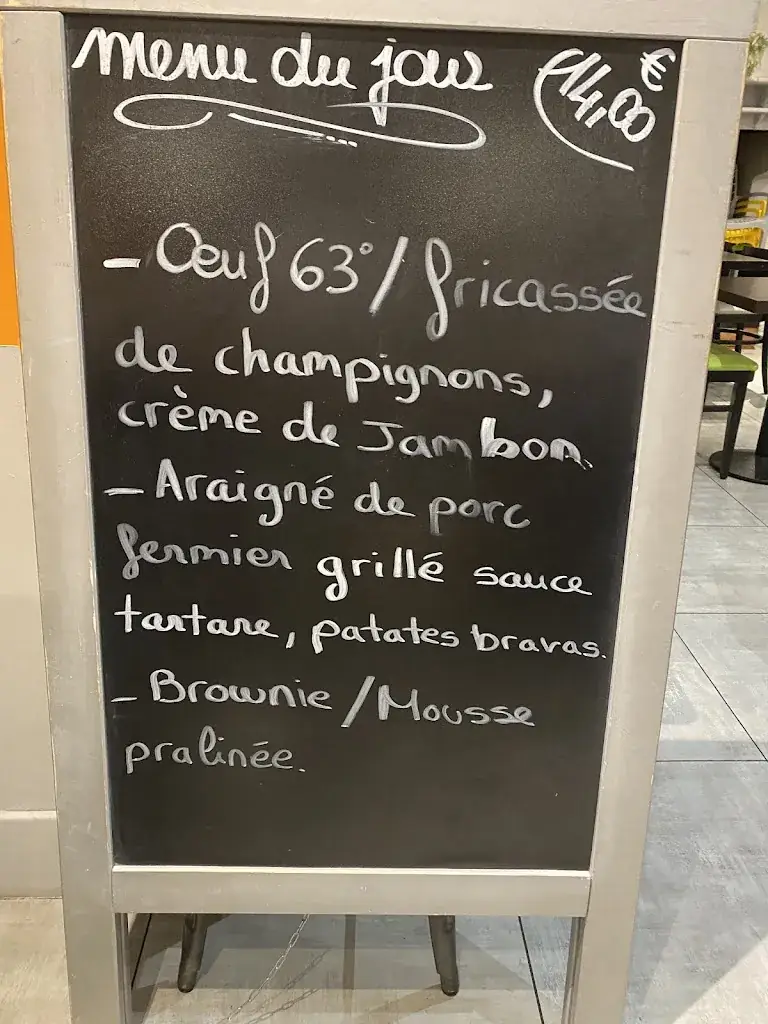 Menu du jour
14,00 €
- Œuf 63°/ fricassée
de champignons,
crème de Jambon.
- Araigné de porc
fermier grillé sauce
tartare, patates bravas.
- Brownie / Mousse
pralinée.